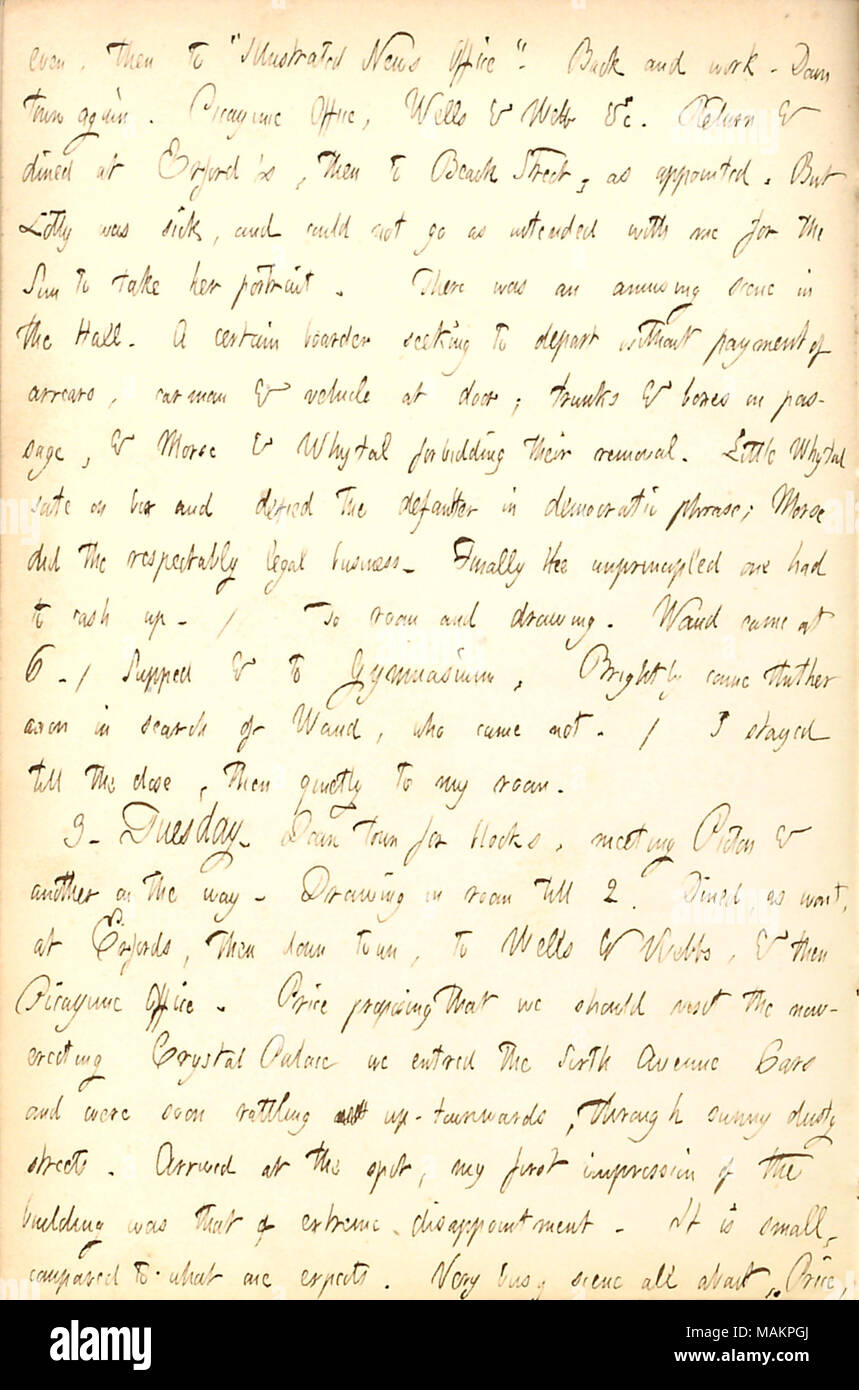 even, then to "Illustrated News Office". Back and work. Down
town again. Picayune Office, Wells & Webb &c. Return &
dined at Erford's, then to Beach Street, as appointed. But
Lotty was sick, and could not go as intended with me for the
Sun to take her portrait. There was an amusing scene in
the Hall. A certain boarder seeking to depart without payment of
arrears, carman & vehicle at door; trunks & boxes in pas-
sage, & Morse & Whytal forbidding their removal. Little Whytal
sate on box and defied the defaulter in democratic phrase; Morse
did the respectably legal business. Finally the unprincipled one had
to cash up. / To room and drawing. Waud came at
6. / Supped & to Gymnasium, Brightly came thither
anon in search of Waud, who came not. / I stayed
till the close, then quietly to my room.
3. Tuesday. Down town for blocks, meeting Picton &
another on the way. Drawing in room till 2. Dined, as wont,
at Erfords, then down town, to Wells & Webbs, & then
Picayune Office. Price proposing that we should visit the now-
erecting Crystal Palace we entred the Sixth Avenue Cars
and were soon rattling up-townwards, through sunny dusty
streets. Arrived at the spot, my first impression of the
building was that of extreme disappointment. It is small,
compared to what one expects. Very busy scene all about, Price,
alamy
Image ID: MAKPGJ
www.alamy.com